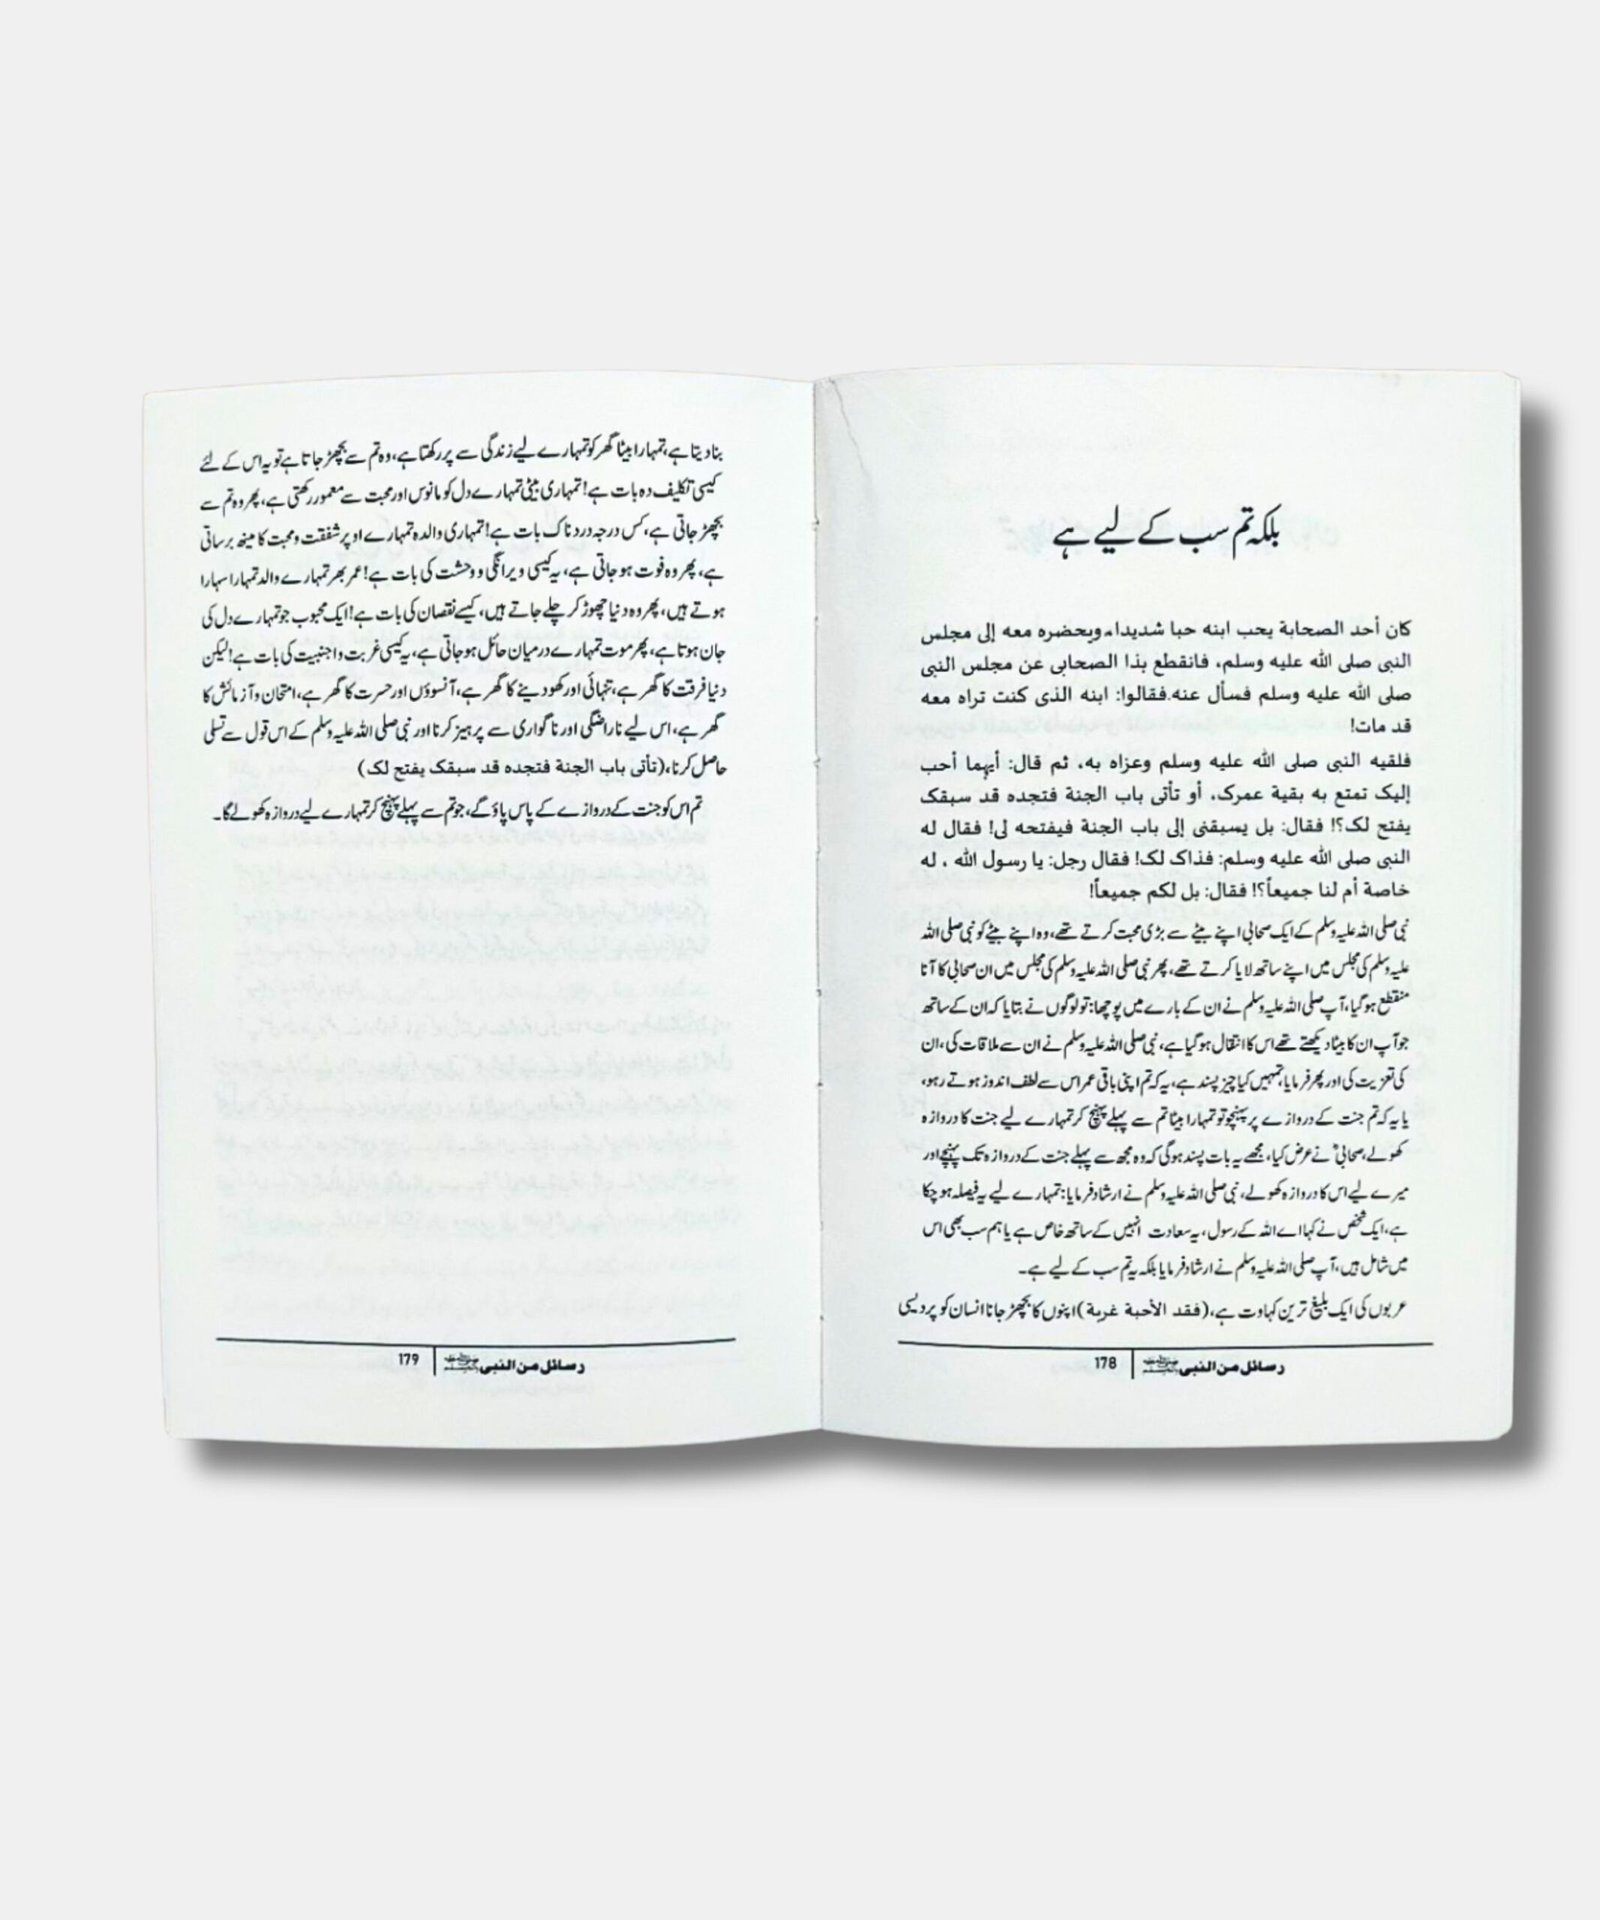 بلکہ تم سب کے لیے ہے
کان أحد الصحابة يحب ابنه حبا شديدا، ويحضره معه إلى مجلس
النبى صلى الله عليه وسلم، فانقطع بذا الصحابى عن مجلس النبى
صلى الله عليه وسلم فسأل عنه.فقالوا: ابنه الذى كنت تراه معه
قد مات!
فلقيه النبى صلى الله عليه وسلم وعزاه به، ثم قال: أيهما أحب
إليک تمتع به بقية عمرک، أو تأتى باب الجنة فتجده قد سبقک
يفتح لک؟! فقال: بل يسبقنى إلى باب الجنة فيفتحه لى! فقال له
النبى صلى الله عليه وسلم: فذاک لک! فقال رجل: يا رسول الله ، له
خاصة أم لنا جميعاً؟! فقال: بل لكم جميعاً!
نبی صلی اللہ علیہ وسلم کے ایک صحابی اپنے بیٹے سے بڑی محبت کرتے تھے، وہ اپنے بیٹے کو نبی صلی اللہ
علیہ وسلم کی مجلس میں اپنے ساتھ لایا کرتے تھے، پھر نبی صلی اللہ علیہ وسلم کی مجلس میں ان صحابی کا آنا
منقطع ہو گیا، آپ صلی اللہ علیہ وسلم نے ان کے بارے میں پوچھا: تو لوگوں نے بتایا کہ ان کے ساتھ
جو آپ ان کا بیٹا دیکھتے تھے اس کا انتقال ہو گیا ہے، نبی صلی اللہ علیہ وسلم نے ان سے ملاقات کی، ان
کی تعزیت کی اور پھر فرمایا، تمہیں کیا چیز پسند ہے، یہ کہ تم اپنی باقی عمر اس سے لطف اندوز ہوتے رہو،
یا یہ کہ تم جنت کے دروازے پر پہنچو تو تمہارا بیٹا تم سے پہلے پہنچ کر تمہارے لیے جنت کا دروازہ
کھولے، صحابیؓ نے عرض کیا، مجھے یہ بات پسند ہوگی کہ وہ مجھ سے پہلے جنت کے دروازہ تک پہنچے اور
میرے لیے اس کا دروازہ کھولے، نبی صلی اللہ علیہ وسلم نے ارشاد فرمایا: تمہارے لیے یہ فیصلہ ہو چکا
ہے، ایک شخص نے کہا اے اللہ کے رسول، یہ سعادت انہیں کے ساتھ خاص ہے یا ہم سب بھی اس
میں شامل ہیں، آپ صلی اللہ علیہ وسلم نے ارشاد فرمایا بلکہ یہ تم سب کے لیے ہے۔
عربوں کی ایک بلیغ ترین کہاوت ہے، (فقد الأحبة غربة) اپنوں کا بچھڑ جانا انسان کو پردیسی
رسائل من النبی ﷺ 178
بنا دیتا ہے، تمہارا بیٹا گھر کو تمہارے لیے زندگی سے پر رکھتا ہے، وہ تم سے بچھڑ جاتا ہے تو یہ اس کے لئے
کیسی تکلیف دہ بات ہے! تمہاری بیٹی تمہارے دل کو مانوس اور محبت سے معمور رکھتی ہے، پھر وہ تم سے
بچھڑ جاتی ہے، کس درجہ دردناک بات ہے! تمہاری والدہ تمہارے اوپر شفقت و محبت کا مینھ برساتی
ہے، پھر وہ فوت ہو جاتی ہے، یہ کیسی ویرانگی و وحشت کی بات ہے! عمر بھر تمہارے والد تمہارا سہارا
ہوتے ہیں، پھر وہ دنیا چھوڑ کر چلے جاتے ہیں، کیسے نقصان کی بات ہے! ایک محبوب جو تمہارے دل کی
جان ہوتا ہے، پھر موت تمہارے درمیان حائل ہو جاتی ہے، یہ کیسی غربت و اجنبیت کی بات ہے! لیکن
دنیا فرقت کا گھر ہے، تنہائی اور کھو دینے کا گھر ہے، آنسوؤں اور حسرت کا گھر ہے، امتحان و آزمائش کا
گھر ہے، اس لیے ناراضگی اور ناگواری سے پرہیز کرنا اور نبی صلی اللہ علیہ وسلم کے اس قول سے تسلی
حاصل کرنا، (تأتى باب الجنة فتجده قد سبقک يفتح لک)
تم اس کو جنت کے دروازے کے پاس پاؤ گے، جو تم سے پہلے پہنچ کر تمہارے لیے دروازہ کھولے گا۔
رسائل من النبی ﷺ 179